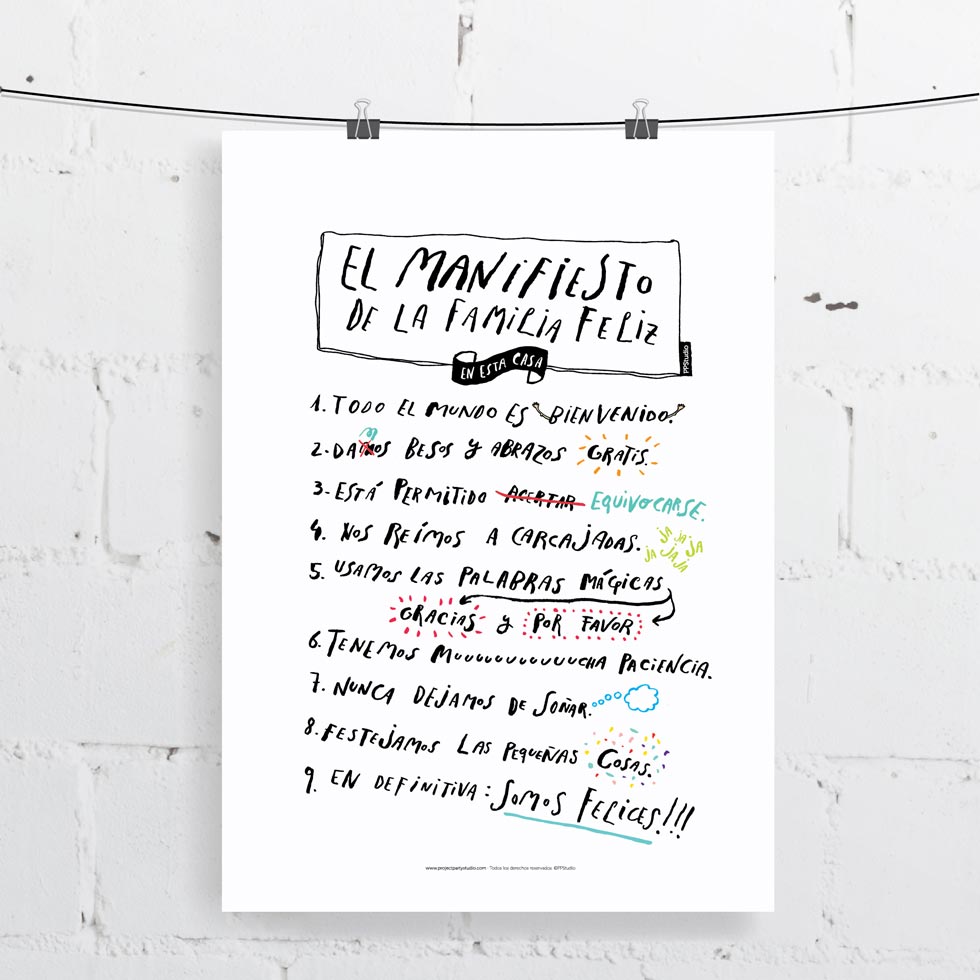 EL MANIFIESTO
DE LA FAMILIA FELIZ
PPStudio
EN ESTA CASA
1. TODO EL MUNDO ES BIENVENIDO.
2. DAMOS BESOS Y ABRAZOS GRATIS.
3. ESTÁ PERMITIDO ACERTAR EQUIVOCARSE.
4. NOS REÍMOS A CARCAJADAS.
JA JA JA
JA JA JA
5. USAMOS LAS PALABRAS MÁGICAS
GRACIAS Y POR FAVOR
6. TENEMOS MUUUUUUUUUUUCHA PACIENCIA.
7. NUNCA DEJAMOS DE SOÑAR.
8. FESTEJAMOS LAS PEQUEÑAS COSAS.
9. EN DEFINITIVA: SOMOS FELICES!!!
www.projectpartystudio.com · Todos los derechos reservados ©PPStudio